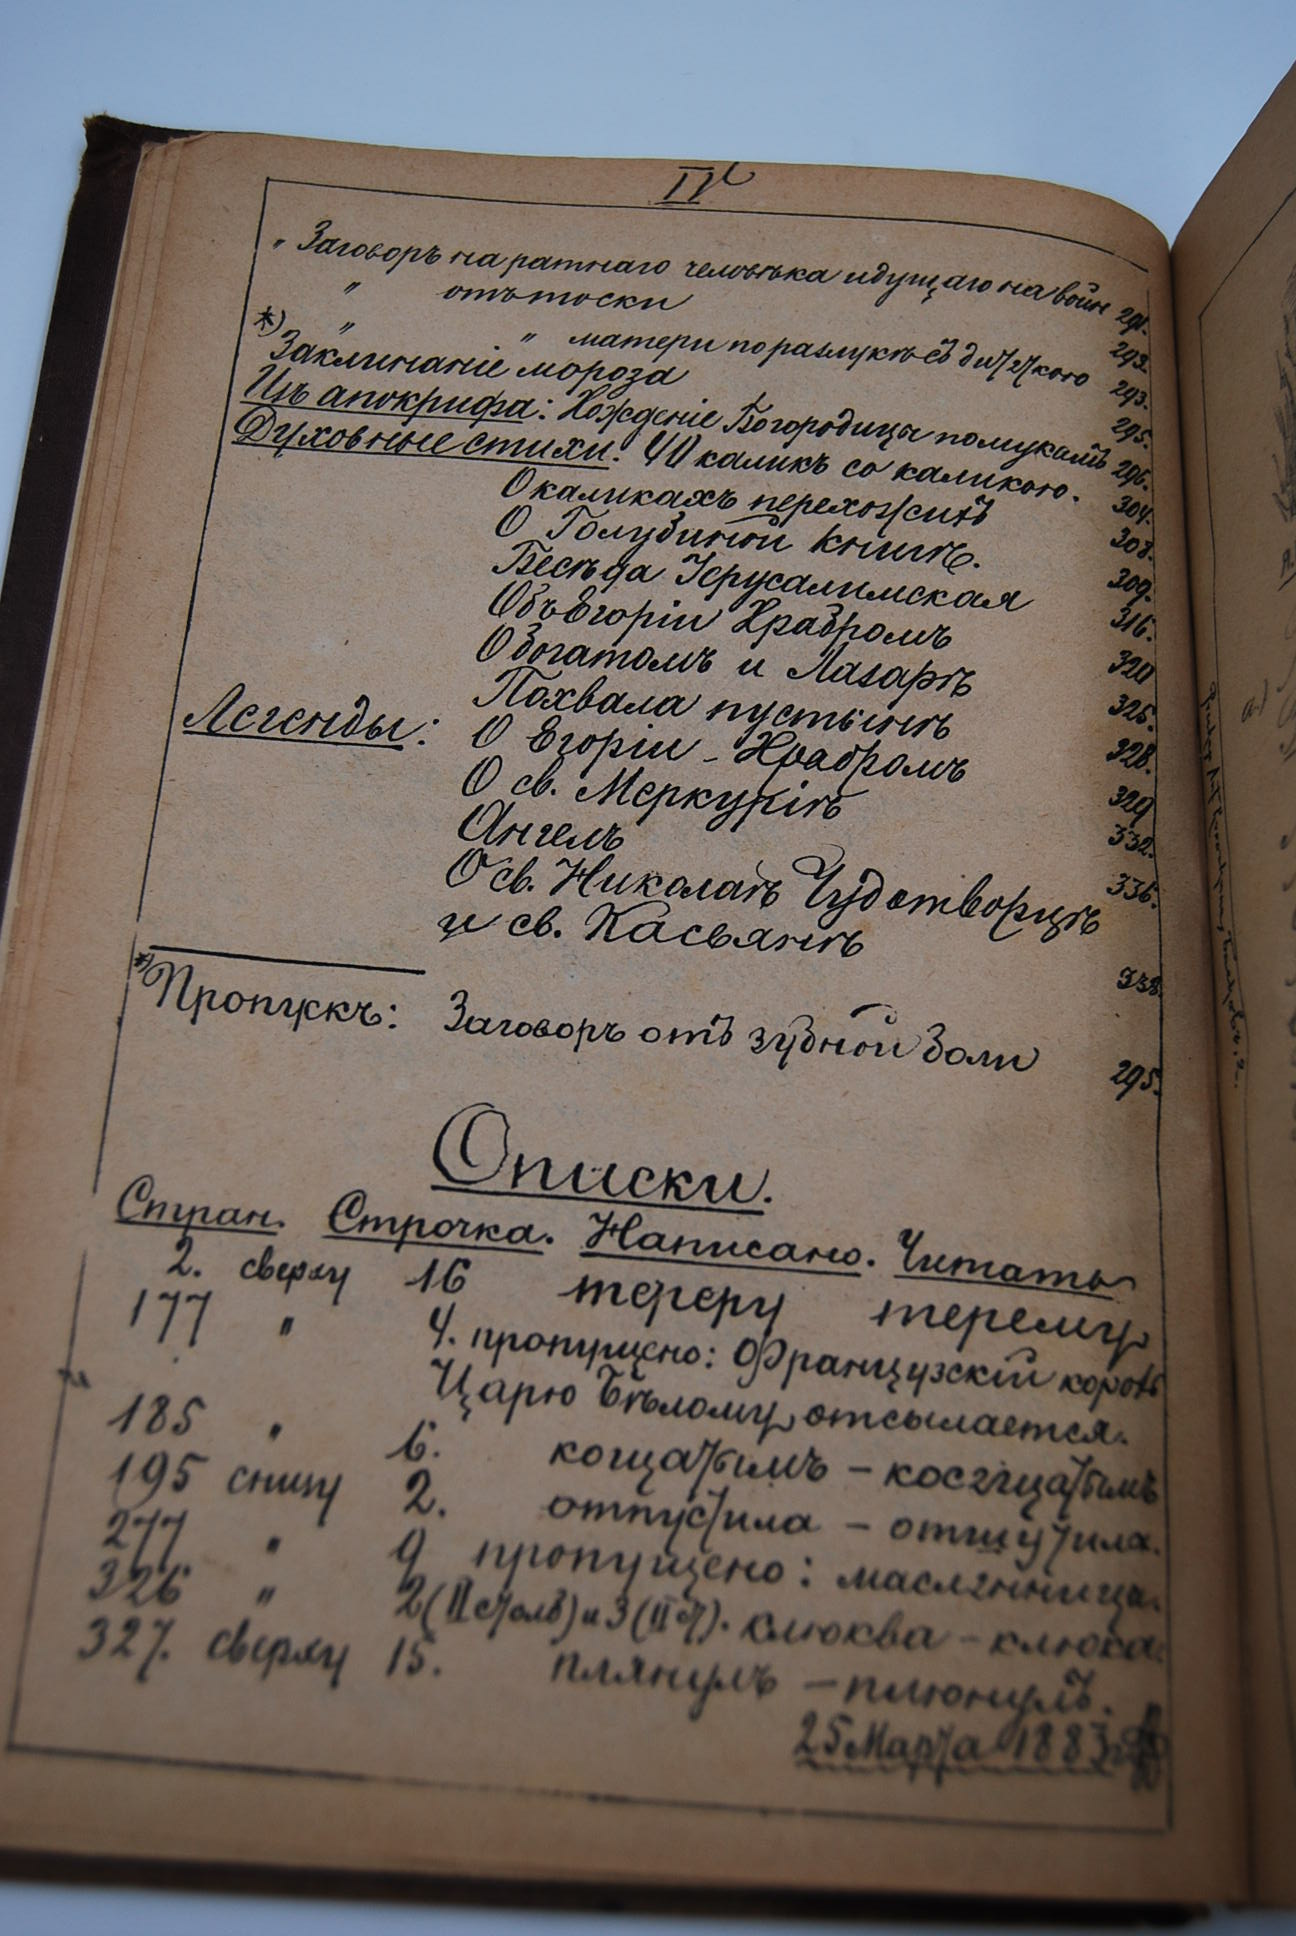 IV
„ Заговоръ на ратнаго человѣка идущаго на войн 291.
„ отъ тоски 293.
„ „ матери по разлукѣ съ дитяткою 293.
*) Заклинаніе мороза 295.
Изъ апокрифа: Хожденіе Богородицы по мукамъ 296.
Духовные стихи: 40 каликъ со каликою. 304.
О каликахъ перехожихъ 308.
О Голубиной книгѣ. 309.
Бесѣда Іерусалимская 316.
Объ Егоріи Храбромъ 320
О богатомъ и Лазарѣ 325.
Похвала пустынѣ 328.
Легенды: О Егоріи - Храбромъ 329
О св. Меркуріѣ 332.
Ангелъ 336.
О св. Николаѣ Чудотворцѣ
и св. Касьянѣ 338.
*) Пропускъ: Заговоръ отъ зубной боли 295.
Описки.
Стран. Строчка. Написано. Читать
2. сверху 16 терему терему
177 „ 4. пропущено: Французскій король
Царю Бѣлому отсылается.
185 „ 6. когщатымъ – косящатымъ
195 снизу 2. отпустила – отшутила.
277 „ 9 пропущено: масленница.
326 „ 2 (II столб) и 3 (II ст). клюква – клюка.
327. сверху 15. плянулъ – плюнулъ.
25 Марта 1883 г.